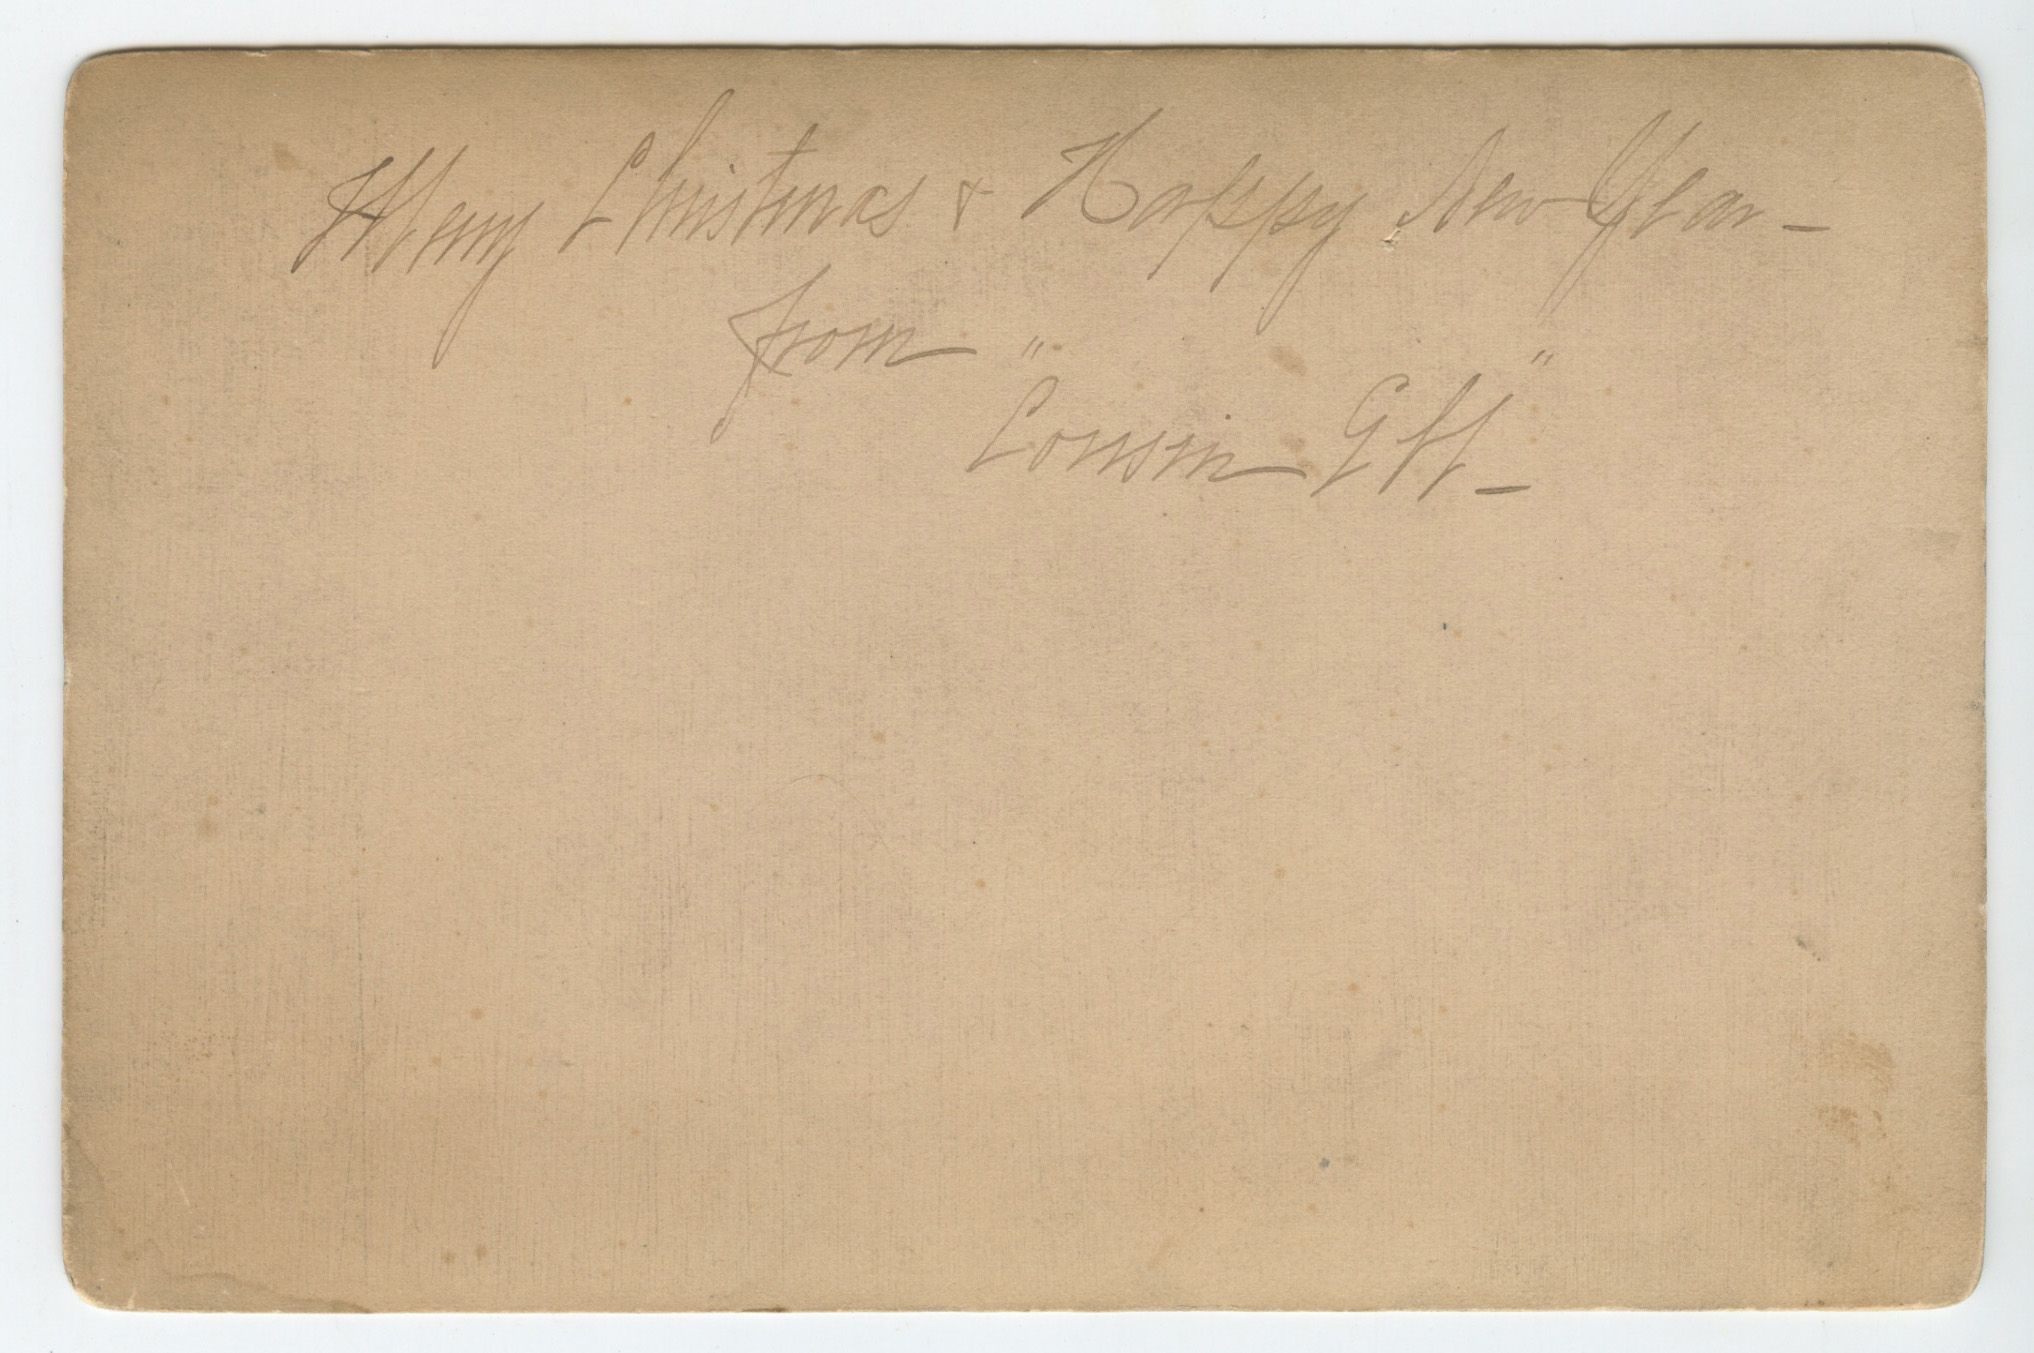 Merry Christmas & Happy New Year –
from "
Cousin GH – "